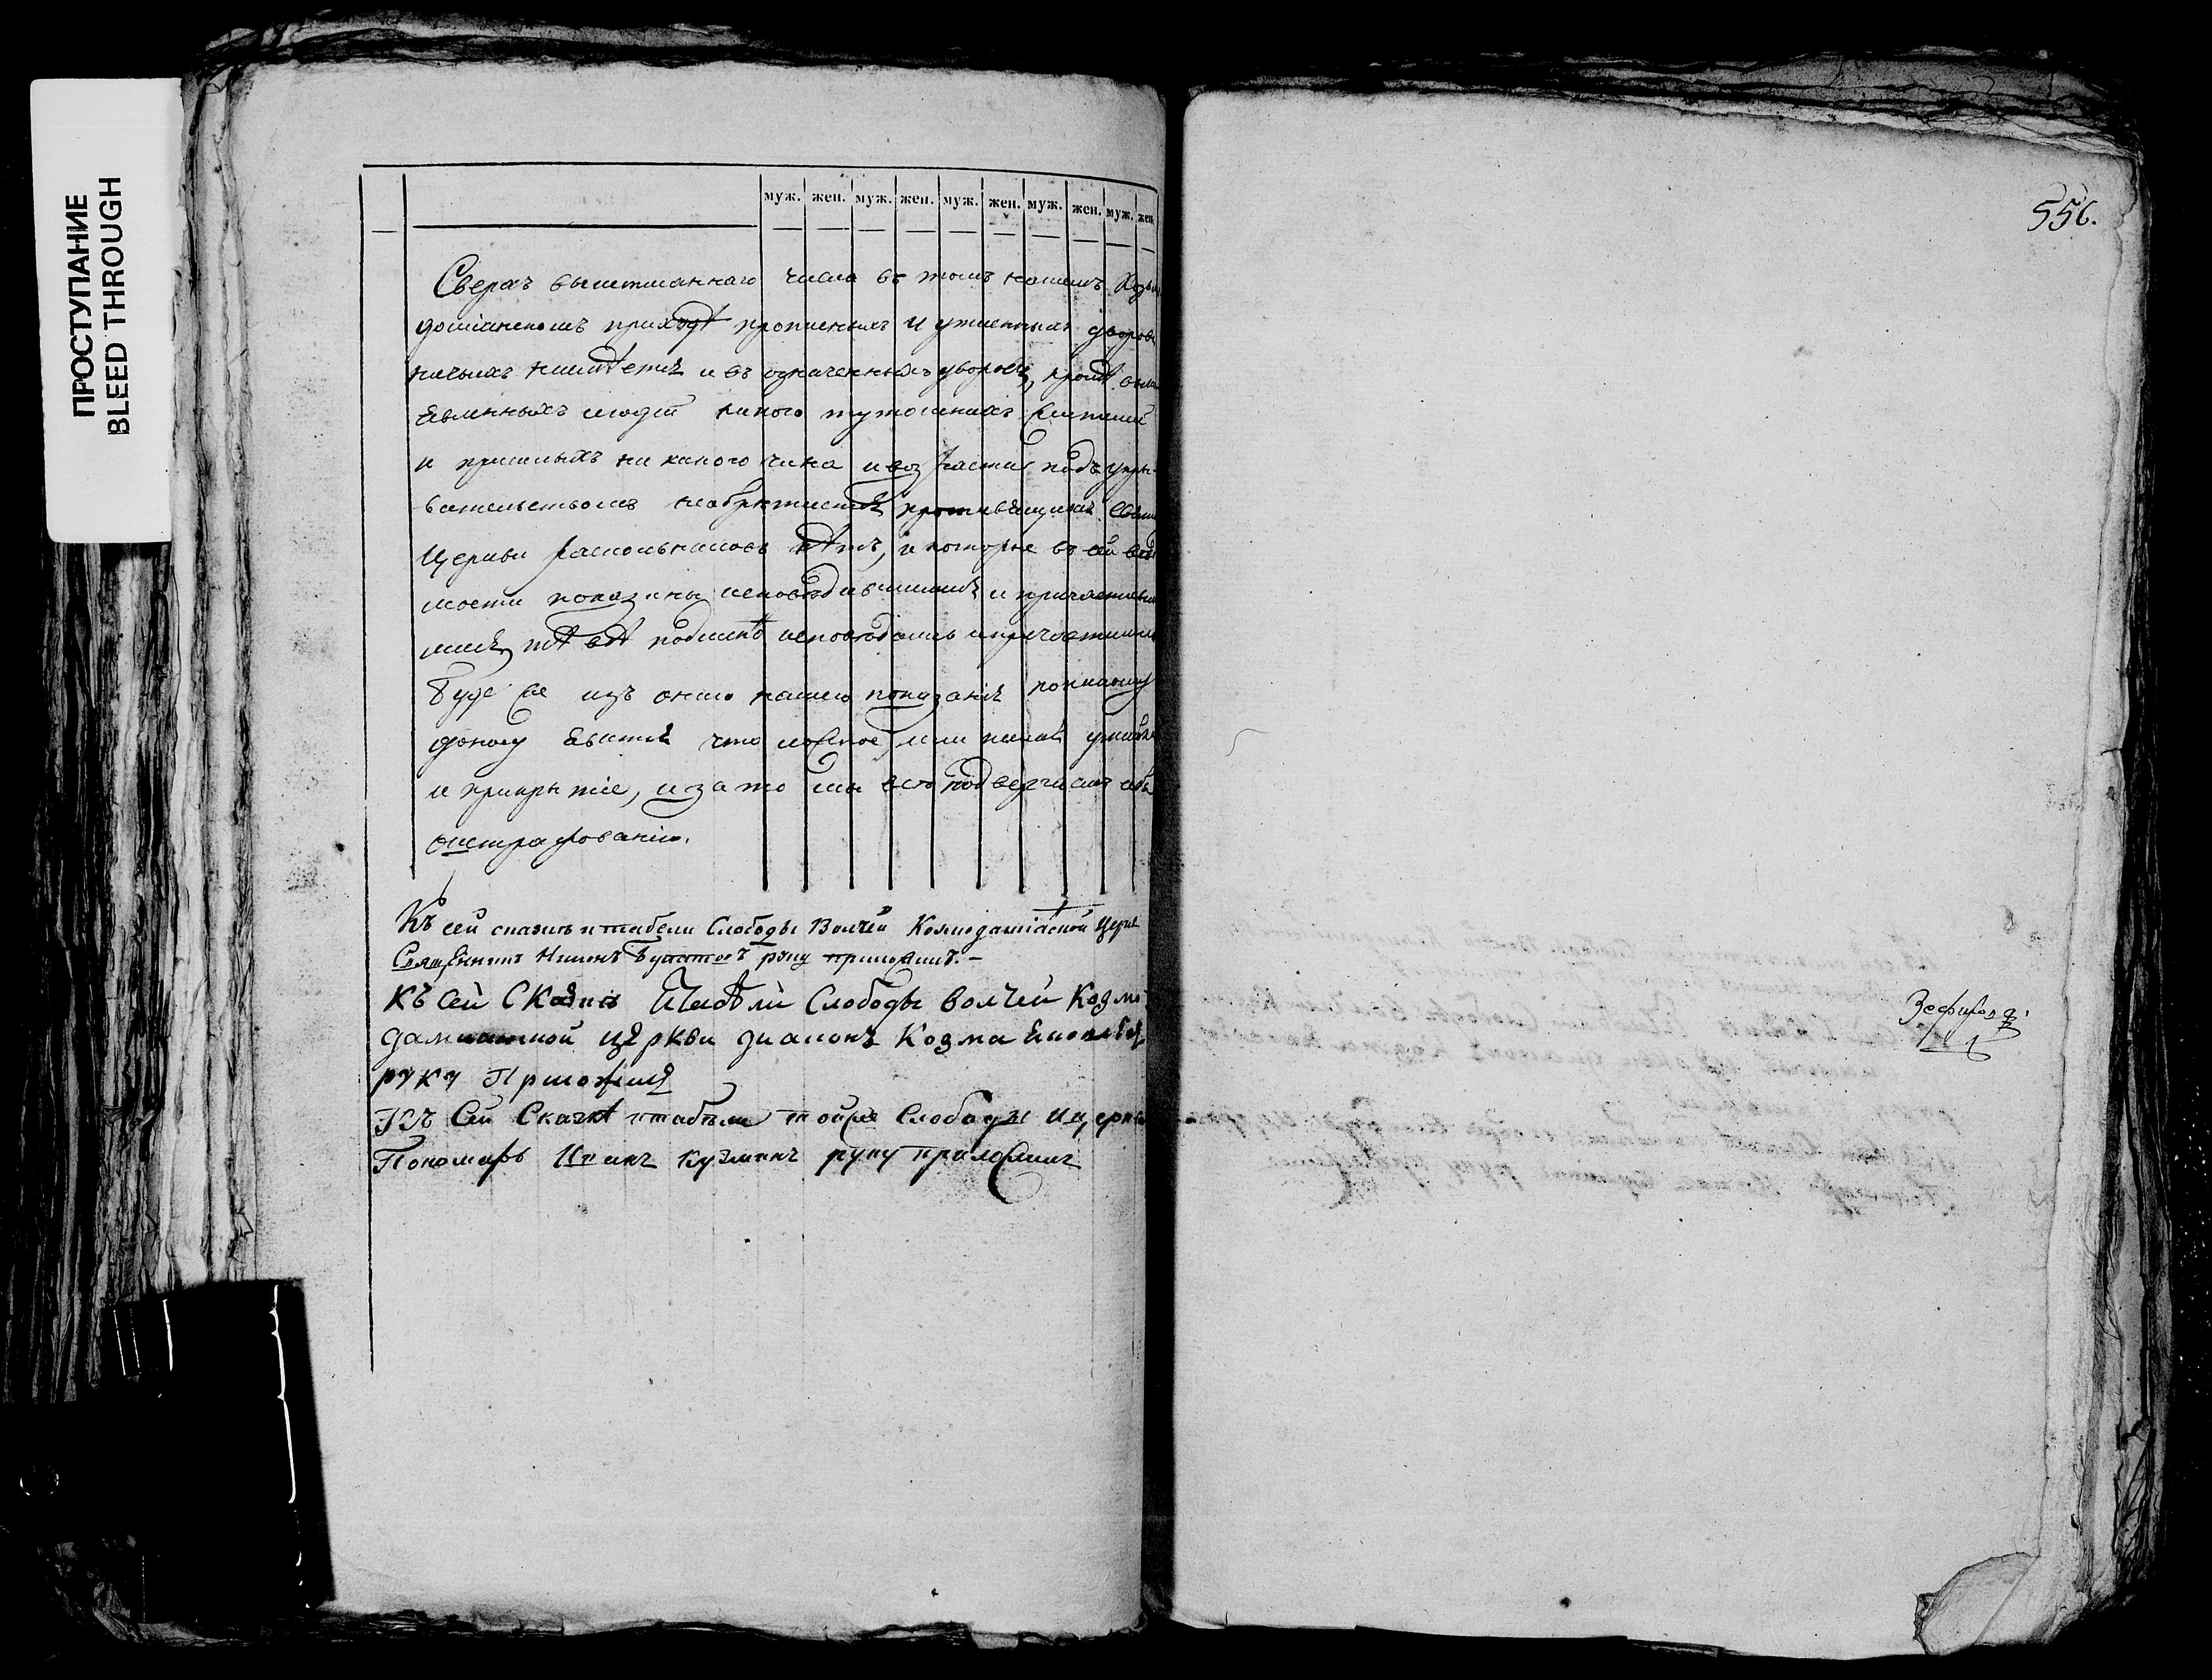 ПРОСТУПАНИЕ
BLEED THROUGH
муж. жен. муж. жен. муж. жен. муж. жен. муж. жен.
556.
Сверхъ вышеписаннаго числа въ томъ нашемъ Козмо
доміанскомъ приходѣ прописныхъ и утаенныхъ дворовъ
ничьихъ и въ означенныхъ дворехъ, кромѣ
явленныхъ людей никого тутошнихъ жителей
и пришлыхъ ни какого чина и возраста подъ укры
вательствомъ необрѣтается противящихся
Церкви раскольниковъ нѣтъ, и которые въ сей вѣдо
мости показаны исповѣдавшимися и причастив
шися, тѣ всѣ подлинно исповѣдались и причастились
буде же изъ онаго нашего показанія по какому
доносу явится что ложное, или какая утайка
и прикрытіе, и за то мы все подвергаемъ себя
оштрафованію.
Къ сей сказкѣ и табели Слободы Волчей Козмодаміанской Церкви
Священникъ руку приложилъ. —
Къ сей Сказкѣ Итабѣли Слободы волчей Козмо
дамианской цѣркви диаконъ Козма
руку Приложилъ
Къ Сей Сказкѣ итабели тойже Слободы ицеркви
Пономарь Иванъ Кузминъ руку приложилъ